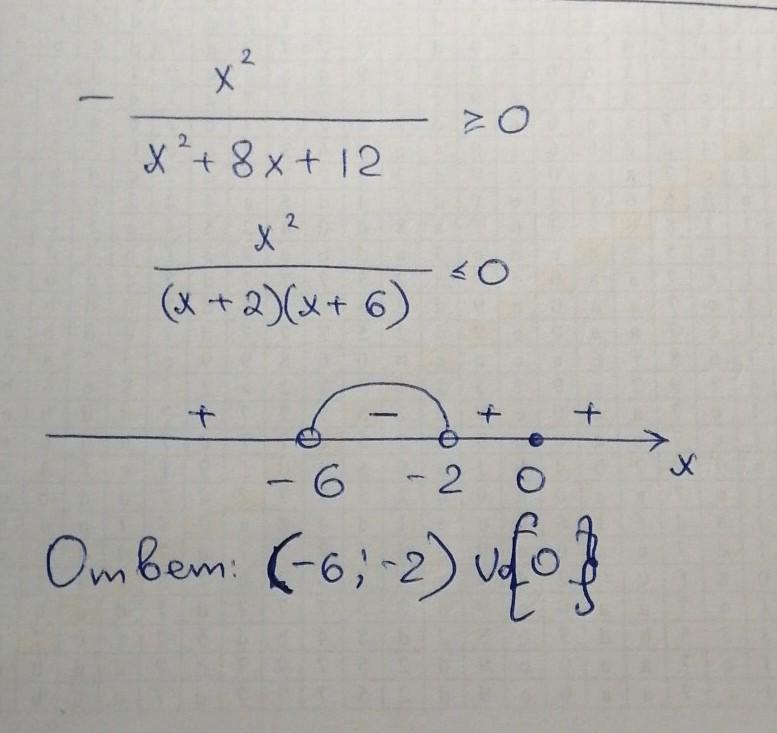 - x² / (x² + 8x + 12) ≥ 0
x² / ((x + 2)(x + 6)) ≤ 0
+ - + +
-6 -2 0 x
Ответ: (-6; -2) ∪ {0}